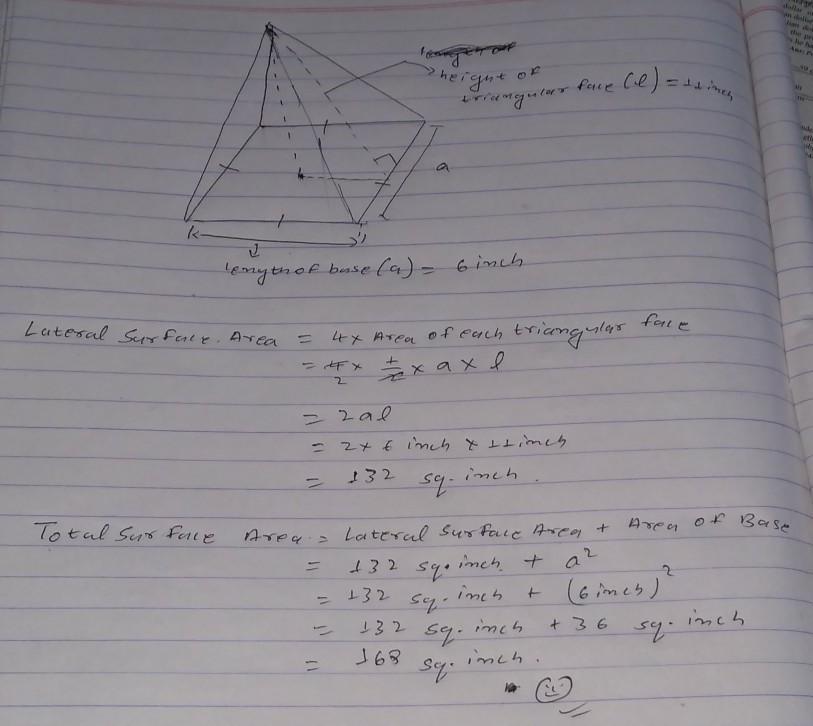 height of
triangular face (l) = 11 inch
a
length of base (a) = 6 inch
Lateral Surface Area = 4 x Area of each triangular face
= 4 x 1/2 x a x l
2
= 2al
= 2 x 6 inch x 11 inch
= 132 sq. inch.
Total Surface Area = Lateral Surface Area + Area of Base
= 132 sq. inch + a²
= 132 sq. inch + (6 inch)²
= 132 sq. inch + 36 sq. inch
= 168 sq. inch.